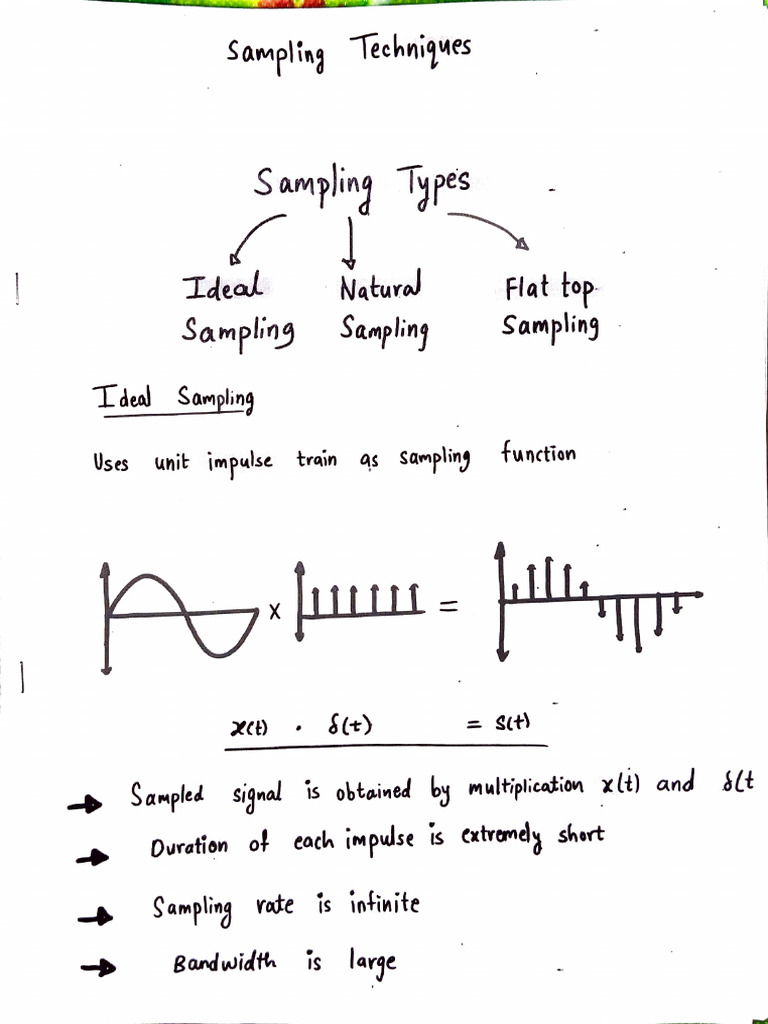 Sampling Techniques
Sampling Types
Ideal Sampling
Natural Sampling
Flat top Sampling
Ideal Sampling
Uses unit impulse train as sampling function
x =
x(t) . δ(t) = s(t)
→ Sampled signal is obtained by multiplication x(t) and δ(t
→ Duration of each impulse is extremely short
→ Sampling rate is infinite
→ Bandwidth is large